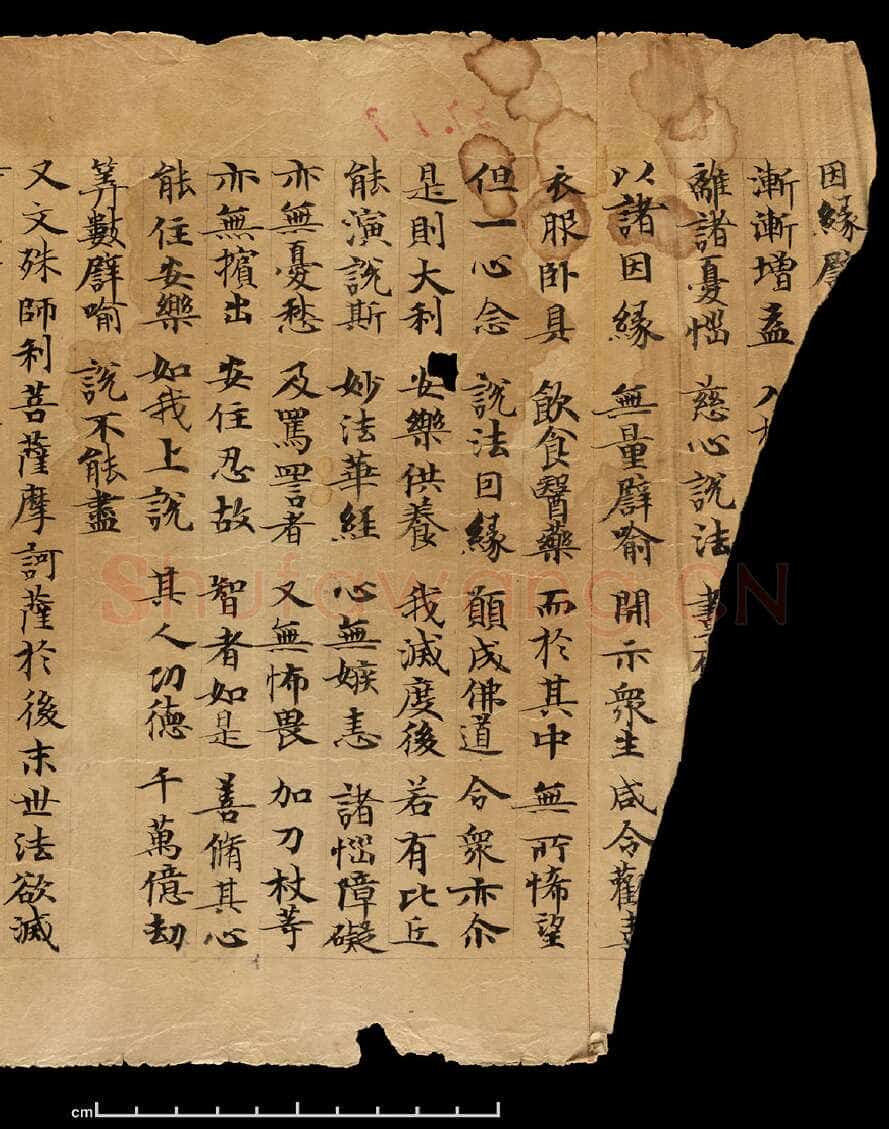 因緣譬
漸漸增益 入
離諸憂惱 慈心說法 晝
以諸因緣 無量譬喻 開示衆生 咸令歡
衣服卧具 飲食醫藥 而於其中 無所悕望
但一心念 說法因緣 願成佛道 令衆亦尒
是則大利 安樂供養 我滅度後 若有比丘
能演說斯 妙法華經 心無嫉恚 諸惱障礙
亦無憂愁 及罵詈者 又無怖畏 加刀杖等
亦無擯出 安住忍故 智者如是 善脩其心
能住安樂 如我上說 其人功德 千萬億劫
筭數譬喻 說不能盡
又文殊師利菩薩摩訶薩於後末世法欲滅
Shufawang.CN
cm